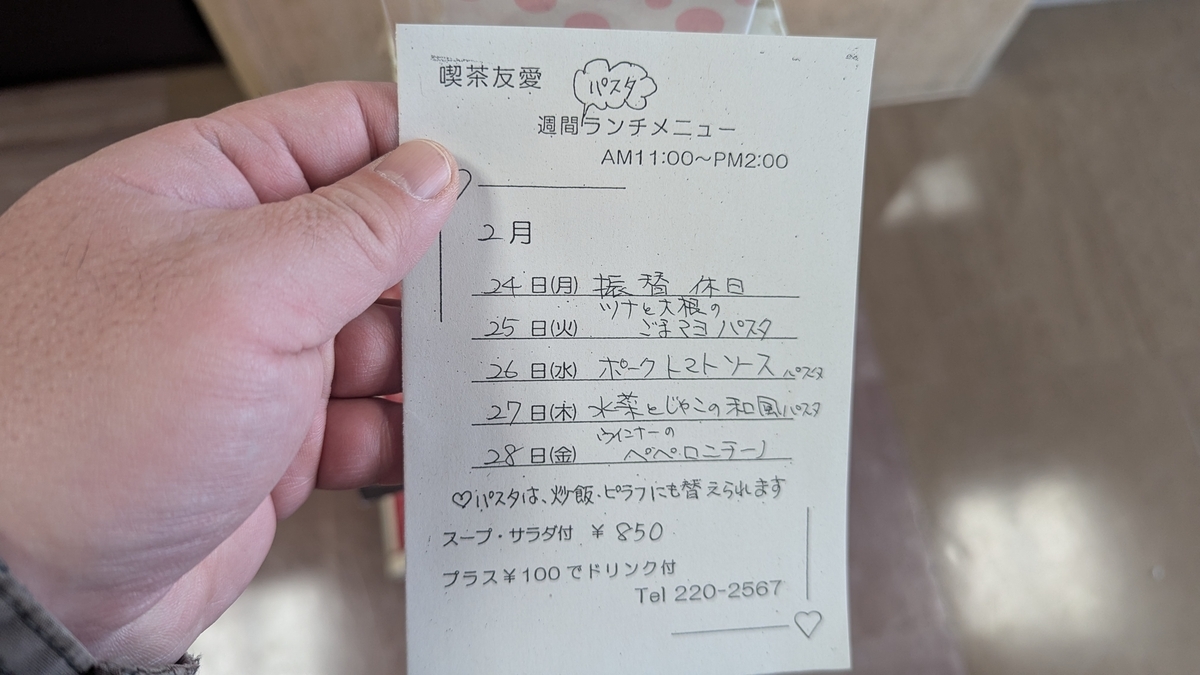 喫茶友愛
パスタ
週間ランチメニュー
AM11:00～PM2:00
2月
24日(月) 振替休日
25日(火) ツナと大根の
ごまマヨパスタ
26日(水) ポークトマトソースパスタ
27日(木) 水菜とじゃこの和風パスタ
28日(金) ウインナーの
ペペロニチーノ
♡パスタは、炒飯・ピラフにも替えられます
スープ・サラダ付 ¥850
プラス¥100でドリンク付
Tel 220-2567